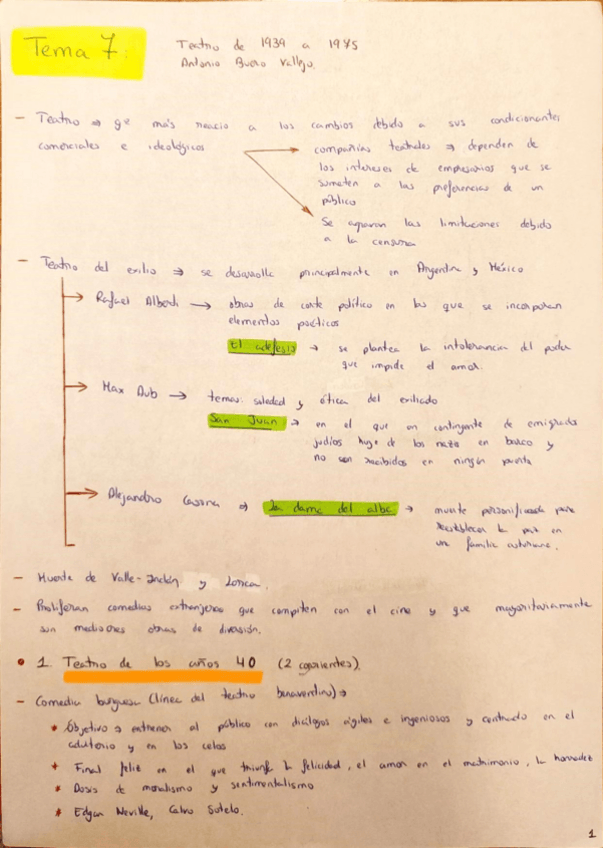 Tema 7:
Teatro de 1939 a 1975
Antonio Buero Vallejo.
- Teatro → gº más reacio a los cambios debido a sus condicionantes
comerciales e ideológicos
→ compañías teatrales → dependen de
los intereses de empresarios que se
someten a las preferencias de un
público
→ Se agravan las limitaciones debido
a la censura
- Teatro del exilio → se desarrolla principalmente en Argentina y México
→ Rafael Alberti → obras de corte político en las que se incorporan
elementos poéticos
El adefesio → se plantea la intolerancia del poder
que impide el amor.
→ Max Aub → temas: soledad y ótica del exiliado
San Juan → en el que un contingente de emigrados
judíos huye de los nazis en barco y
no son recibidos en ningún puerto
→ Alejandro Casona → La dama del alba → muerte personificada para
reestablecer la paz en
una familia asturiana.
- Muerte de Valle-Inclán y Lorca.
- Proliferan comedias extranjeras que compiten con el cine y que mayoritariamente
son mediocres obras de diversión.
• 1. Teatro de los años 40 (2 corrientes).
- Comedia burguesa (línea del teatro benaventino) →
* Objetivo → entretener al público con diálogos ágiles e ingeniosos y centrado en el
adulterio y en los celos
* Final feliz en el que triunfa la felicidad, el amor en el matrimonio, la honradez
* Dosis de moralismo y sentimentalismo
* Edgar Neville, Calvo Sotelo.
1